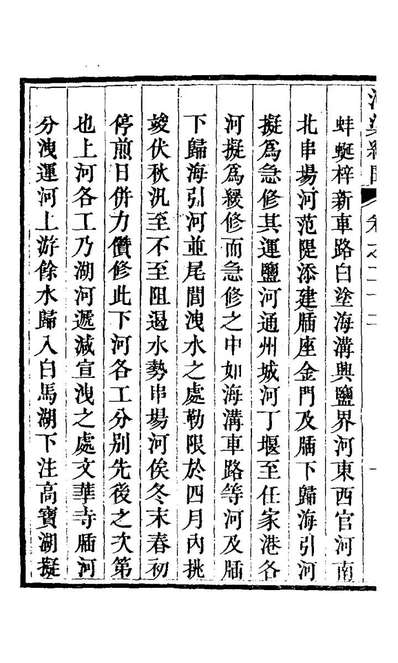 蚌蜒梓新車路白塗海溝興鹽界河東西官河南
北串場河范隄添建牐座金門及牐下歸海引河
擬爲急修其運鹽河通州城河丁堰至任家港各
河擬爲緩修而急修之中如海溝車路等河及牐
下歸海引河並尾閭洩水之處勒限於四月內挑
竣伏秋汛至不至阻遏水勢串場河俟冬末春初
停煎日併力儹修此下河各工分別先後之次第
也上河各工乃湖河遞減宣洩之處文華寺牐河
分洩運河上游餘水歸入白馬湖下注高寶湖擬